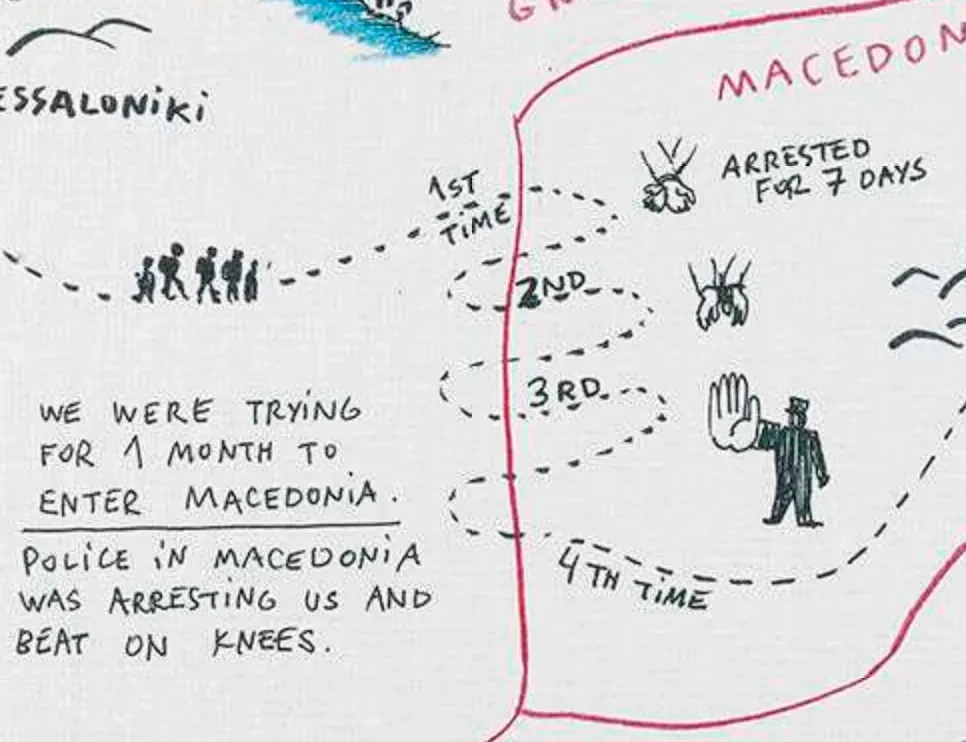 MACEDON
ESSALONiKi
ARRESTED
FOR 7 DAYS
1ST
TiME
2ND
3RD
4TH TiME
WE WERE TRYiNG
FOR 1 MONTH TO
ENTER MACEDONiA.
POLiCE iN MACEDONiA
WAS ARRESTiNG US AND
BEAT ON KNEES.